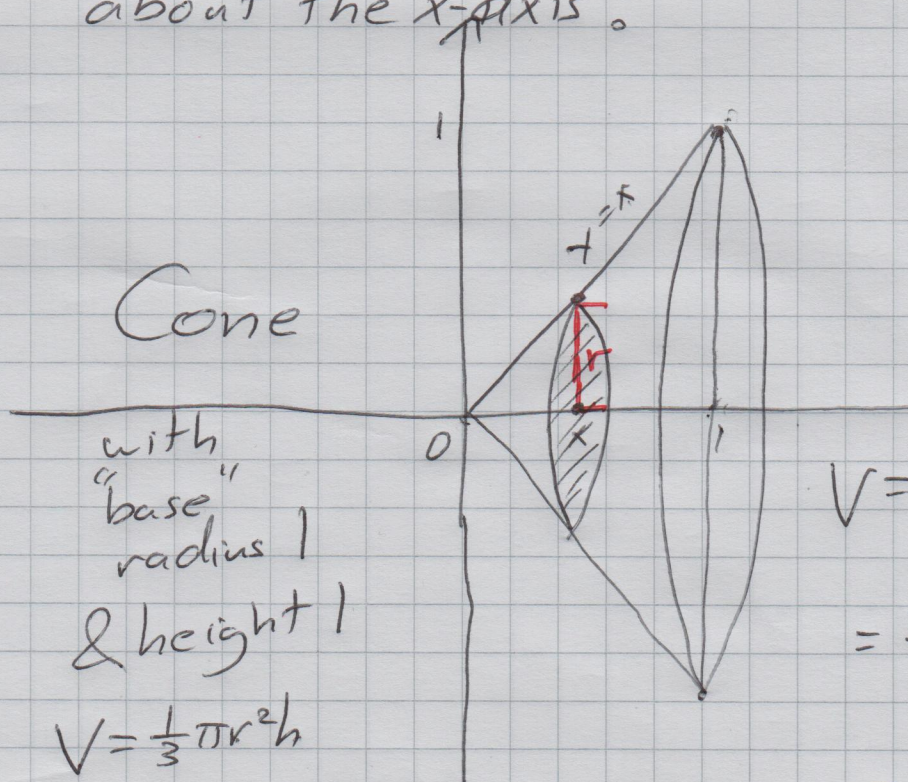 about the x-axis.
1
y=x
Cone
r
0
x
1
with
"base"
radius 1
& height 1
V=
=
V = 1/3 πr²h